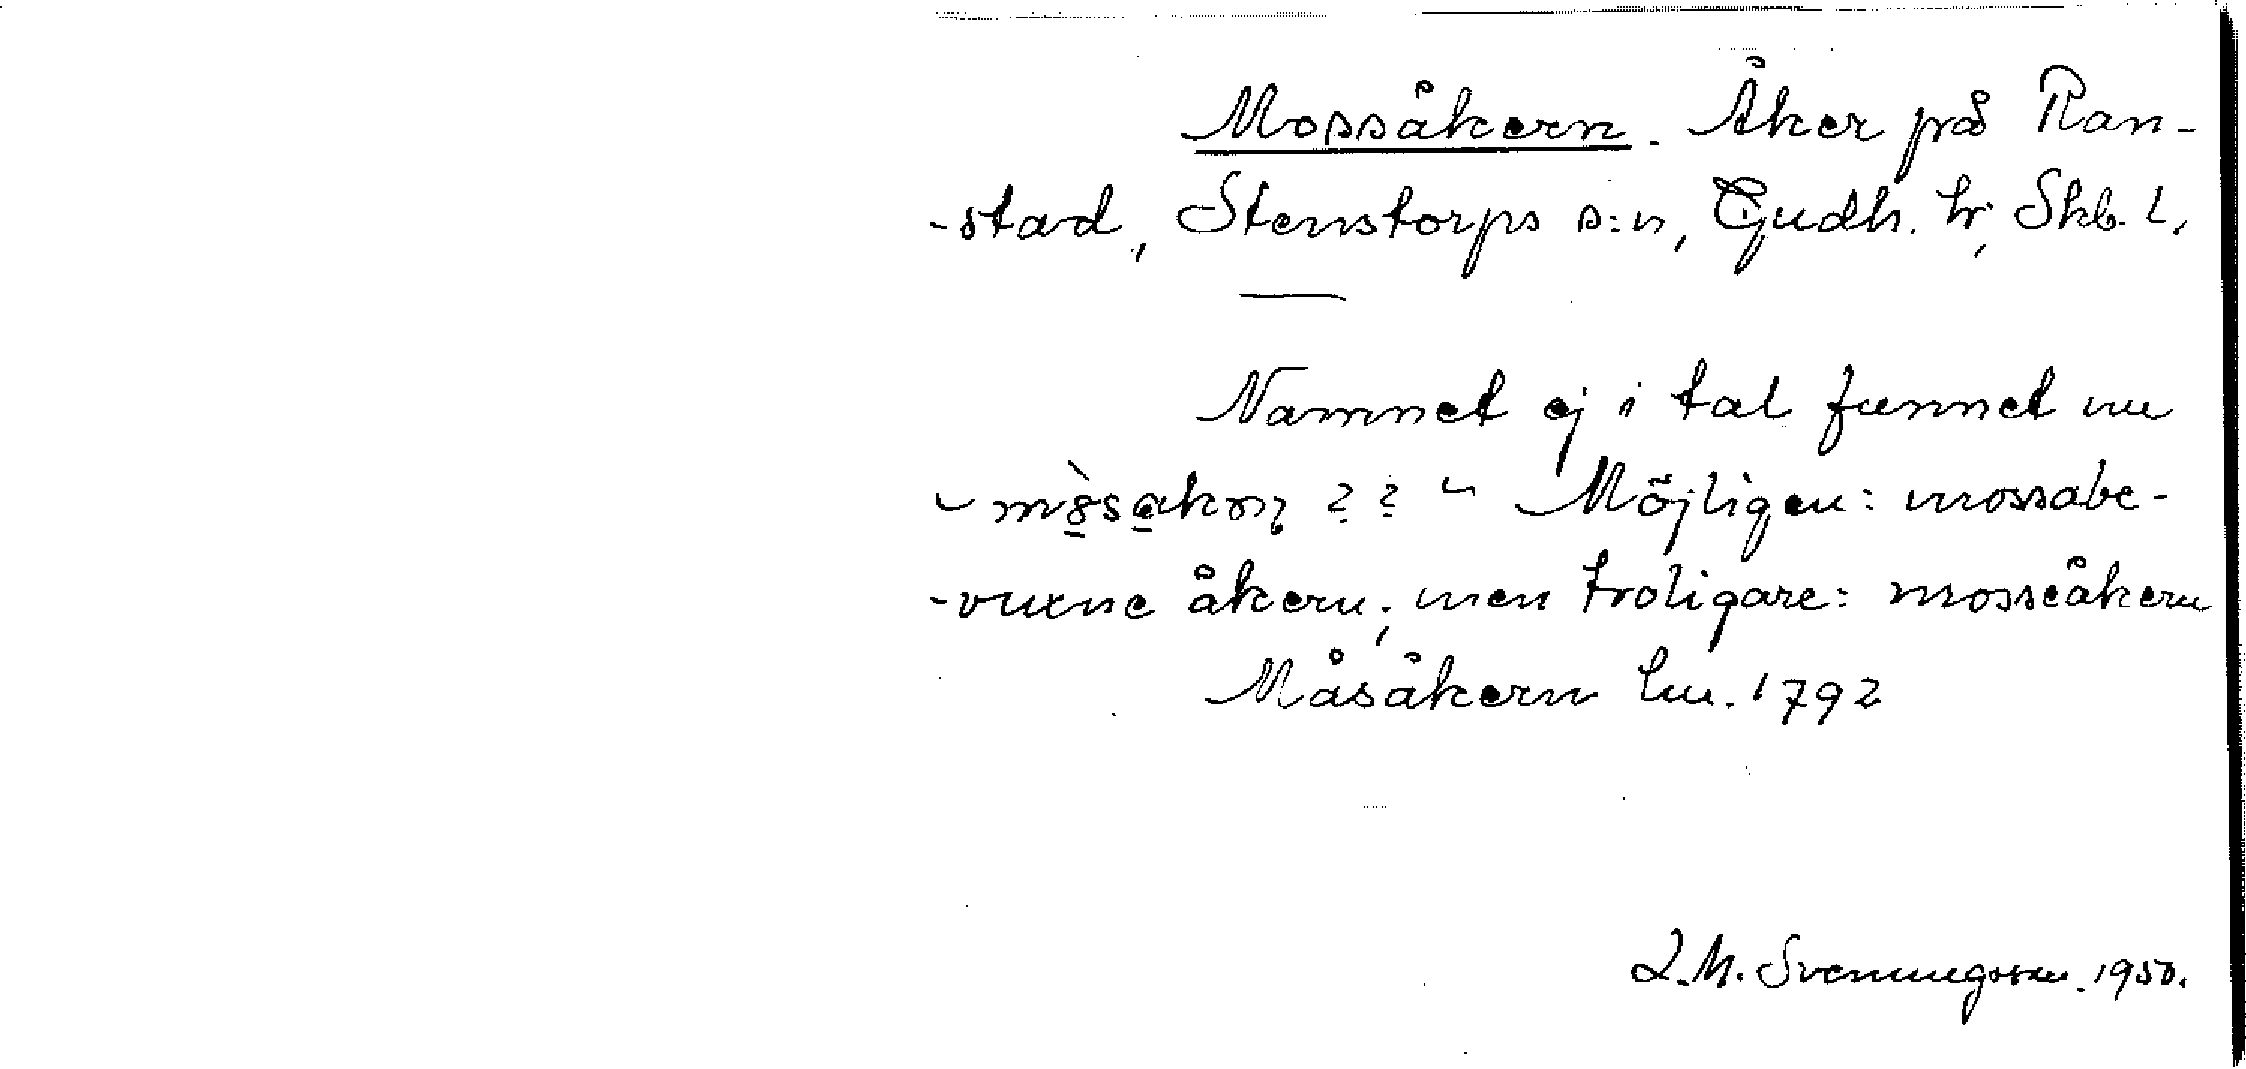 Mossåkern. Åker på Ran-
-stad, Stenstorps s:n, Gudh. hr, Skb. l.
Namnet ej i tal funnet nu
Möjligen: mossabe-
-vuxne åkern; men troligare: mosseåkern
Måsåkern lm. 1792
L.M. Svenungsson. 1950.